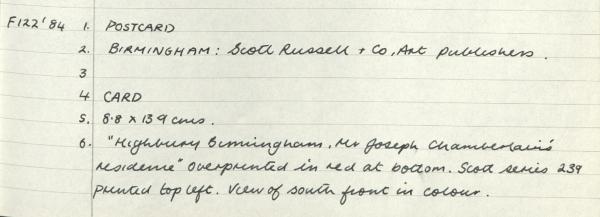 F122'84 1. POSTCARD
2. BIRMINGHAM: Scott Russell + Co, Art publishers.
3
4 CARD
5. 8.8 x 13.9 cms.
6. "Highbury Birmingham. Mr Joseph Chamberlain's
residence" overprinted in red at bottom. Scott series 239
printed top left. View of south front in colour.